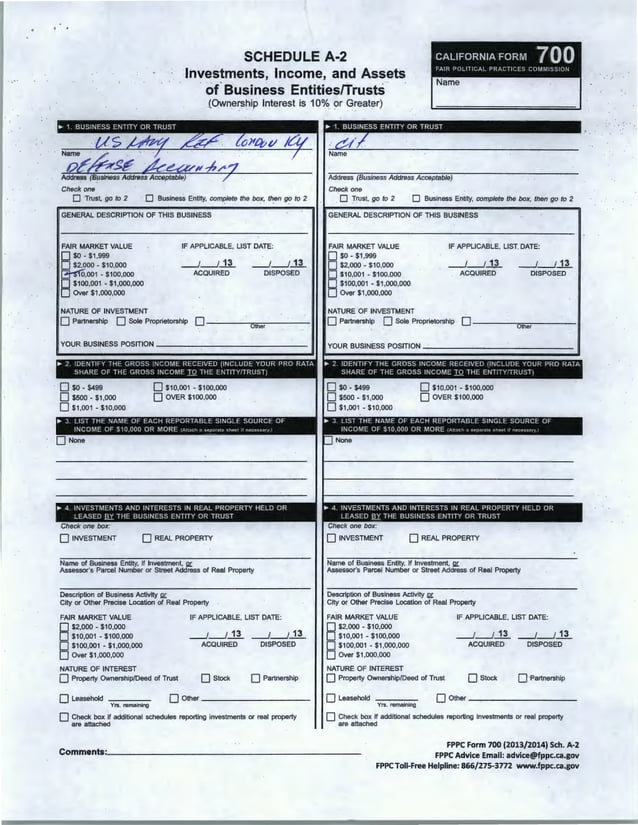 SCHEDULE A-2
Investments, Income, and Assets
of Business Entities/Trusts
(Ownership Interest is 10% or Greater)
CALIFORNIA FORM 700
FAIR POLITICAL PRACTICES COMMISSION
Name
► 1. BUSINESS ENTITY OR TRUST
US Navy Ret London Ky
Name
Defense Accounting
Address (Business Address Acceptable)
Check one
☐ Trust, go to 2 ☐ Business Entity, complete the box, then go to 2
GENERAL DESCRIPTION OF THIS BUSINESS
FAIR MARKET VALUE IF APPLICABLE, LIST DATE:
☐ $0 - $1,999
☐ $2,000 - $10,000 / / 13 / / 13
☐ $10,001 - $100,000 ACQUIRED DISPOSED
☐ $100,001 - $1,000,000
☐ Over $1,000,000
NATURE OF INVESTMENT
☐ Partnership ☐ Sole Proprietorship ☐
Other
YOUR BUSINESS POSITION
► 2. IDENTIFY THE GROSS INCOME RECEIVED (INCLUDE YOUR PRO RATA
SHARE OF THE GROSS INCOME TO THE ENTITY/TRUST)
☐ $0 - $499 ☐ $10,001 - $100,000
☐ $500 - $1,000 ☐ OVER $100,000
☐ $1,001 - $10,000
► 3. LIST THE NAME OF EACH REPORTABLE SINGLE SOURCE OF
INCOME OF $10,000 OR MORE (Attach a separate sheet if necessary.)
☐ None
► 4. INVESTMENTS AND INTERESTS IN REAL PROPERTY HELD OR
LEASED BY THE BUSINESS ENTITY OR TRUST
Check one box:
☐ INVESTMENT ☐ REAL PROPERTY
Name of Business Entity, if Investment, or
Assessor's Parcel Number or Street Address of Real Property
Description of Business Activity or
City or Other Precise Location of Real Property
FAIR MARKET VALUE IF APPLICABLE, LIST DATE:
☐ $2,000 - $10,000
☐ $10,001 - $100,000 / / 13 / / 13
☐ $100,001 - $1,000,000 ACQUIRED DISPOSED
☐ Over $1,000,000
NATURE OF INTEREST
☐ Property Ownership/Deed of Trust ☐ Stock ☐ Partnership
☐ Leasehold ☐ Other
Yrs. remaining
☐ Check box if additional schedules reporting investments or real property
are attached
► 1. BUSINESS ENTITY OR TRUST
Name
Address (Business Address Acceptable)
Check one
☐ Trust, go to 2 ☐ Business Entity, complete the box, then go to 2
GENERAL DESCRIPTION OF THIS BUSINESS
FAIR MARKET VALUE IF APPLICABLE, LIST DATE:
☐ $0 - $1,999
☐ $2,000 - $10,000 / / 13 / / 13
☐ $10,001 - $100,000 ACQUIRED DISPOSED
☐ $100,001 - $1,000,000
☐ Over $1,000,000
NATURE OF INVESTMENT
☐ Partnership ☐ Sole Proprietorship ☐
Other
YOUR BUSINESS POSITION
► 2. IDENTIFY THE GROSS INCOME RECEIVED (INCLUDE YOUR PRO RATA
SHARE OF THE GROSS INCOME TO THE ENTITY/TRUST)
☐ $0 - $499 ☐ $10,001 - $100,000
☐ $500 - $1,000 ☐ OVER $100,000
☐ $1,001 - $10,000
► 3. LIST THE NAME OF EACH REPORTABLE SINGLE SOURCE OF
INCOME OF $10,000 OR MORE (Attach a separate sheet if necessary.)
☐ None
► 4. INVESTMENTS AND INTERESTS IN REAL PROPERTY HELD OR
LEASED BY THE BUSINESS ENTITY OR TRUST
Check one box:
☐ INVESTMENT ☐ REAL PROPERTY
Name of Business Entity, if Investment, or
Assessor's Parcel Number or Street Address of Real Property
Description of Business Activity or
City or Other Precise Location of Real Property
FAIR MARKET VALUE IF APPLICABLE, LIST DATE:
☐ $2,000 - $10,000
☐ $10,001 - $100,000 / / 13 / / 13
☐ $100,001 - $1,000,000 ACQUIRED DISPOSED
☐ Over $1,000,000
NATURE OF INTEREST
☐ Property Ownership/Deed of Trust ☐ Stock ☐ Partnership
☐ Leasehold ☐ Other
Yrs. remaining
☐ Check box if additional schedules reporting investments or real property
are attached
Comments:
FPPC Form 700 (2013/2014) Sch. A-2
FPPC Advice Email: advice@fppc.ca.gov
FPPC Toll-Free Helpline: 866/275-3772 www.fppc.ca.gov